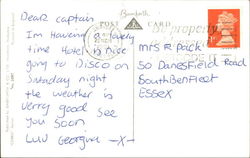 Dear captain
Im Having a lovely
time Hotel is nice
going to Disco on
Sunday night
the weather is
verry good see
you soon
Luv Georgina -x-
POST CARD
Mrs R Pack
50 Danesfield Road
South Benfleet
Essex